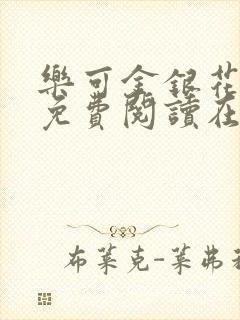 樂可金銀花
免費閱讀在
布萊克-萊弗利